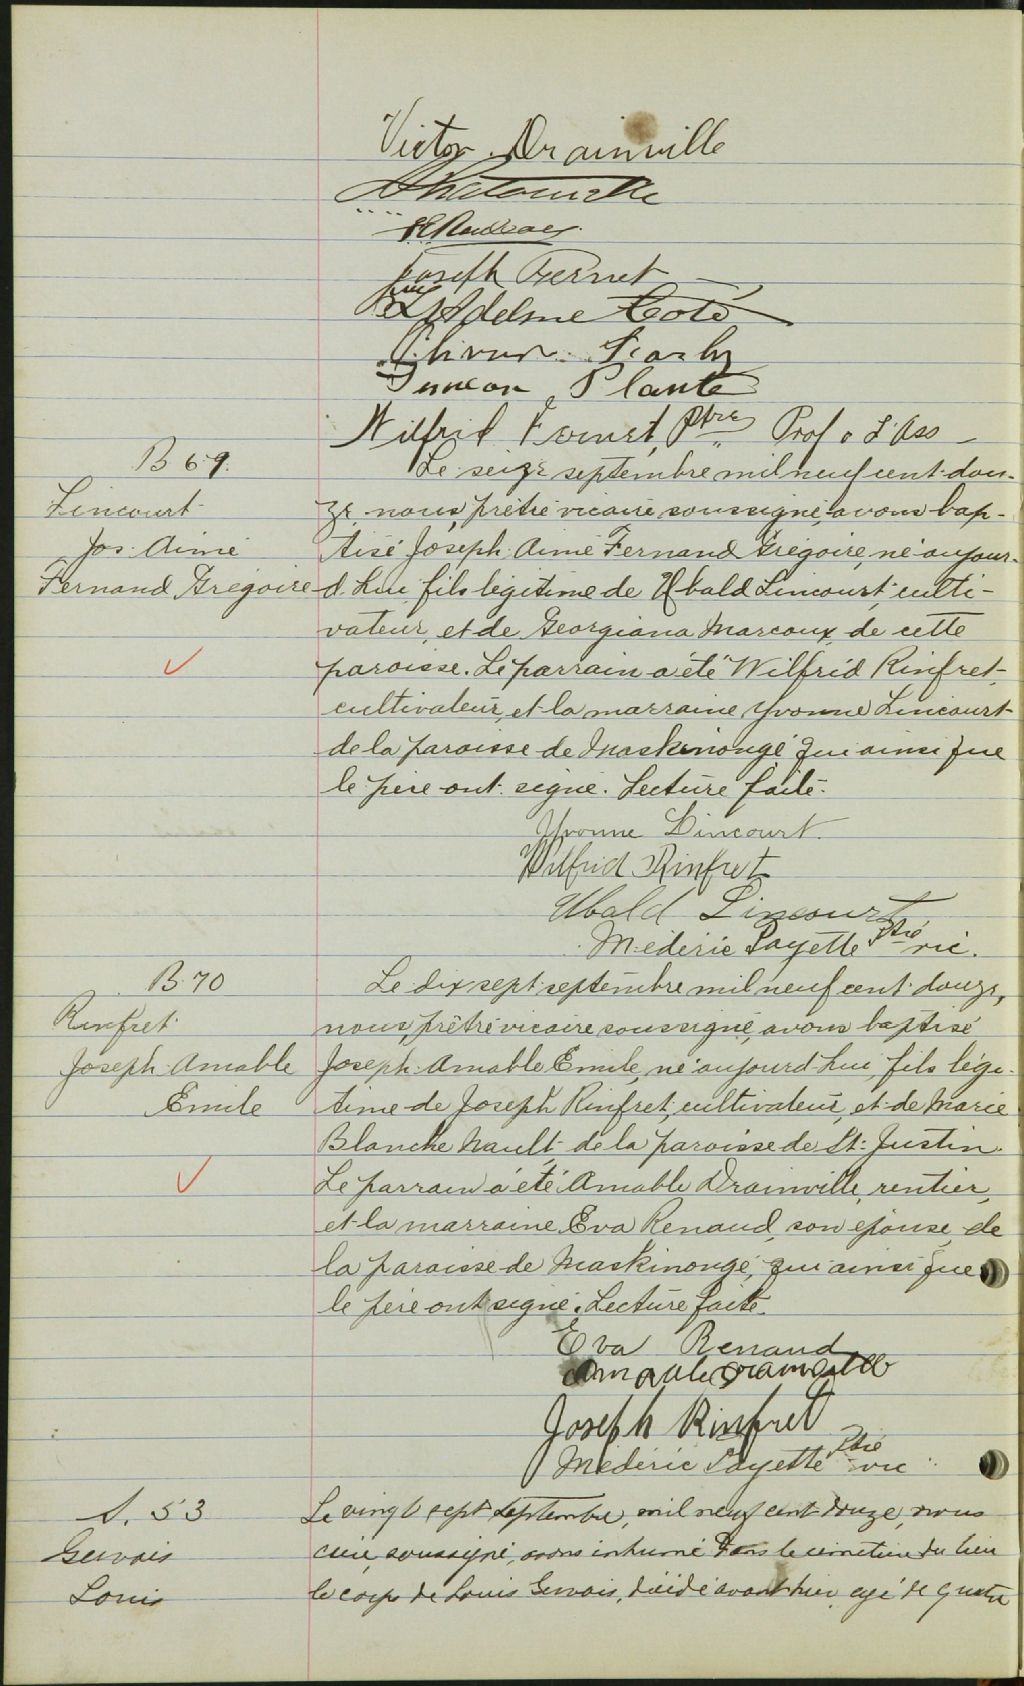 Victor Drainville
Joseph Fernet
Adelme Coté
Plante
Wilfrid Fernet, Ptre Prof. à L'Ass
B 69.
Le seize septembre mil neuf cent dou-
Lincourt
ze, nous, prêtre vicaire soussigné, avons bap-
Jos. Aimé
tisé Joseph Aimé Fernand Grégoire, né aujour-
Fernand Grégoire
d'hui, fils légitime de Ubald Lincourt, culti-
vateur, et de Georgiana Marcoux, de cette
paroisse. Le parrain a été Wilfrid Rinfret,
cultivateur, et la marraine Yvonne Lincourt
de la paroisse de Maskinongé qui ainsi que
le père ont signé. Lecture faite.
Yvonne Lincourt.
Wilfrid Rinfret
Ubald Lincourt
Médéric Payette Ptre vic.
B 70
Le dix sept septembre mil neuf cent douze,
Rinfret
nous, prêtre vicaire soussigné, avons baptisé
Joseph Amable
Joseph Amable Emile, né aujourd'hui, fils légi-
Emile
time de Joseph Rinfret, cultivateur, et de Marie
Blanche Nault, de la paroisse de St-Justin.
Le parrain a été Amable Drainville, rentier,
et la marraine Eva Renaud, son épouse, de
la paroisse de Maskinongé, qui ainsi que
le père ont signé. Lecture faite.
Eva Renaud
Amable Drainville
Joseph Rinfret
Médéric Payette Ptre vic
S. 53
Le vingt sept Septembre, mil neuf cent douze, nous
Gervais
curé, soussigné, avons inhumé dans le cimetière du lieu
Louis
le corps de Louis Gervais, décédé avant hier, agé de quatre